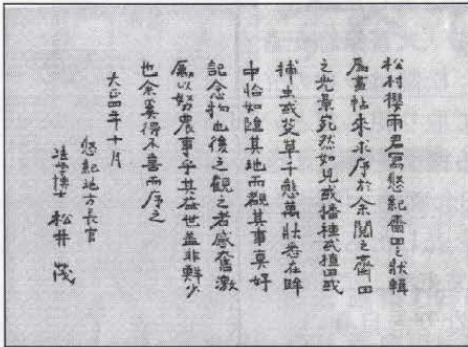 松村櫻雨君寫悠紀齋田之狀輯
為畫帖來求序於余閲之齋田
之光景宛然如見或播種或插田或
捕虫或芟草千態萬狀悉在眸
中恰如臨其地而観其事真好
記念物也後之観之者感奮激
厲以努農事乎其在世益非尠少
也余奚得不喜而序之
大正四年十月
悠紀地方長官
法学博士 松井 茂